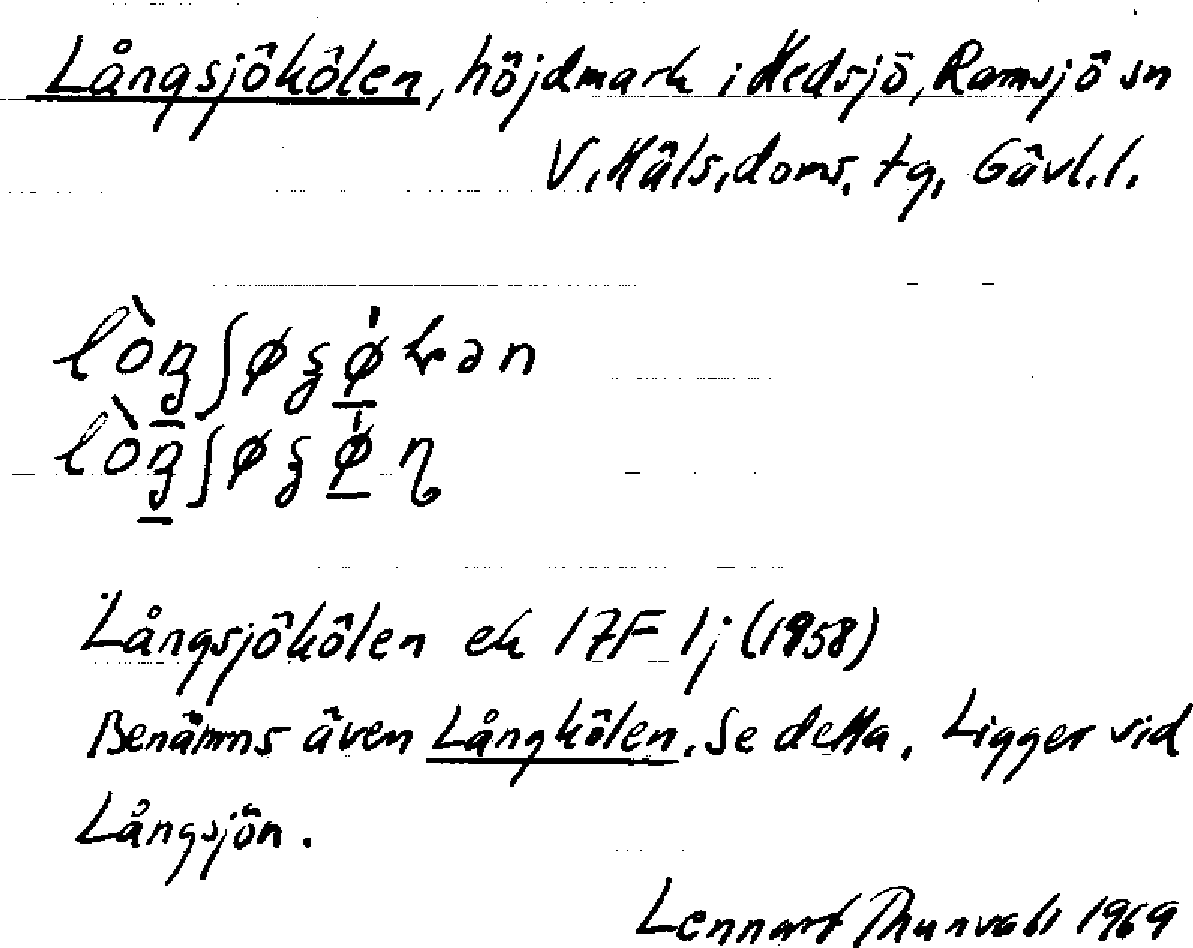 Långsjökölen, höjdmark i Hedsjö, Ramsjö sn
V. Häls. doms. tg, Gävl. l.
Långsjökölen ek 17F 1j (1958)
Benämns även Långkölen. Se detta. Ligger vid
Långsjön.
Lennart Thunvall 1969